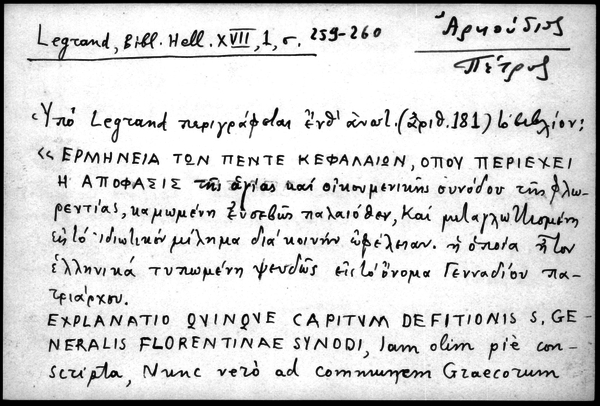 Legrand, Bibl. Hell. XVII, 1, σ. 259-260
Ἀρκούδιος
Πέτρος
Ὑπὸ Legrand περιγράφεται ἔνθ' ἀνωτ. (ἀριθ. 181) τὸ βιβλίον:
«ΕΡΜΗΝΕΙΑ ΤΩΝ ΠΕΝΤΕ ΚΕΦΑΛΑΙΩΝ, ΟΠΟΥ ΠΕΡΙΕΧΕΙ
Η ΑΠΟΦΑΣΙΣ τῆς ἁγίας καὶ οἰκουμενικῆς συνόδου τῆς Φλω-
ρεντίας, καμωμένη εὐσεβῶς παλαιόθεν, καὶ μεταγλωττισμένη
εἰς τὸ ἰδιωτικὸν μίλημα διὰ κοινὴν ὠφέλειαν. ἡ ὁποία ἦτον
ἑλληνικὰ τυπωμένη ψευδῶς εἰς τὸ ὄνομα Γενναδίου πα-
τριάρχου.
EXPLANATIO QVINQVE CAPITVM DEFITIONIS S, GE-
NERALIS FLORENTINAE SYNODI, Iam olim piè con-
scripta, Nunc verò ad communem Graecorum